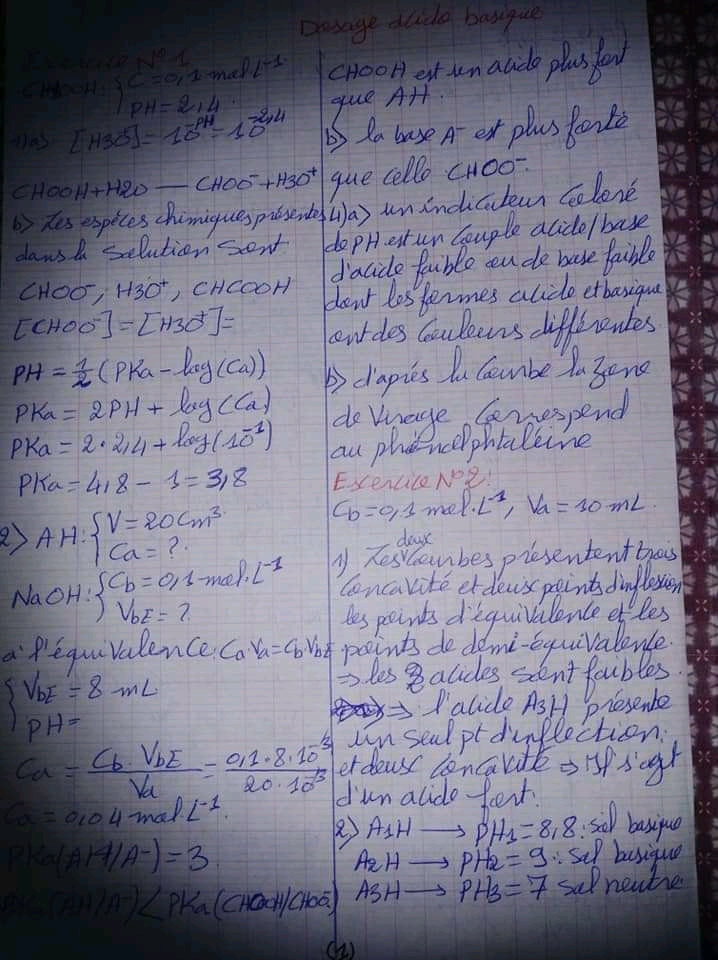 Dosage acido basique
Exercice N°1
CHOOH: { C=0,1 mol.L⁻¹
PH=2,4.
1)a) [H3O⁺]=10⁻ᴾᴴ=10⁻²,⁴
CHOOH+H2O — CHOO⁻+H3O⁺
b) Les espéces chimiques présentes
dans la solution sont
CHOO⁻, H3O⁺, CHCOOH
[CHOO⁻]=[H3O⁺]=
PH = 1/2 (PKa - log(Ca))
PKa = 2PH + log(Ca)
PKa = 2·2,4 + log(10⁻¹)
PKa = 4,8 - 1 = 3,8
2) AH: { V=20cm³
Ca=?
NaOH: { Cb=0,1 mol.L⁻¹
VbE=?
a l'équivalence: Ca·Va=Cb·VbE
{ VbE = 8 mL
PH=
Ca = Cb·VbE/Va = 0,1·8·10⁻³/20·10⁻³
Ca=0,04 mol.L⁻¹.
PKa(AH/A⁻)=3.
PKa(AH/A⁻) < PKa(CHOOH/CHOO⁻)
CHOOH est un acide plus fort
que AH.
b) la base A⁻ est plus forte
que celle CHOO⁻.
4)a) un indicateur coloré
de PH est un couple acide/base
d'acide faible ou de base faible
dont les formes acide et basique
ont des couleurs différentes.
b) d'aprés la courbe la zone
de virage correspond
au phénolphtaléine
Exercice N°2:
Cb=0,1 mol.L⁻¹, Va=10 mL.
1) Les deux courbes présentent trois
concavité et deux points d'inflexion
les points d'équivalence et les
points de demi-équivalence.
⇒ les 2 acides sont faibles.
⇒ l'acide A3H présente
un seul pt d'inflection.
et deux concavité ⇒ Il s'agit
d'un acide fort.
2) A1H → PH1=8,8: sol basique
A2H → PH2=9: sol basique
A3H → PH3=7 sol neutre.
(1)